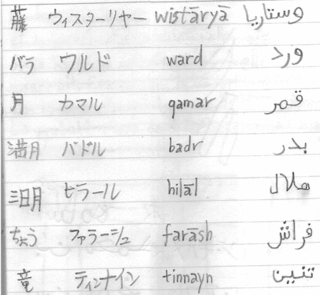 藤 ウィスターリヤー wistārya̅ وستاريا
バラ ワルド ward ورد
月 カマル qamar قمر
満月 バドル badr بدر
三日月 ヒラール hilāl هلال
ちょう ファラーシュ farāsh فراش
竜 ティンナイン tinnayn تنين